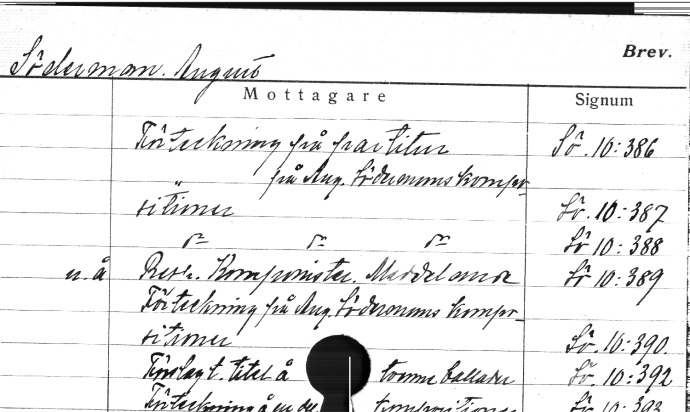 Brev.
Söderman. August
Mottagare Signum
Förteckning på partitur Sö. 10:386
" på Aug. Södermans kompo-
sitioner Sö. 10:387
d:o d:o d:o Sö 10:388
u. å Komponister. Meddelande Sö 10:389
Förteckning på Aug Södermans kompo-
sitioner Sö. 10:390
Förslag t. titel å tvenne ballader Sö. 10:392
Förteckning å en del kompositioner Sö. 10:393